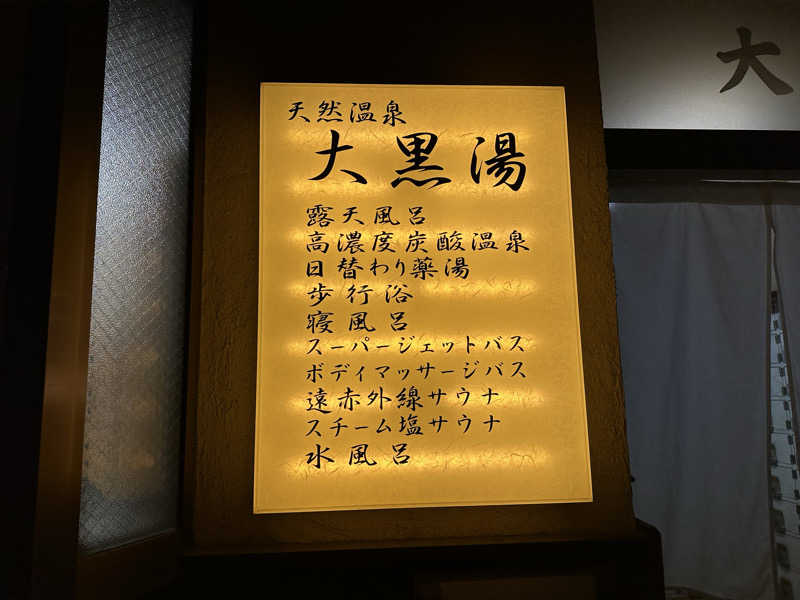 天然温泉
大黒湯
露天風呂
高濃度炭酸温泉
日替わり薬湯
歩行浴
寝風呂
スーパージェットバス
ボディマッサージバス
遠赤外線サウナ
スチーム塩サウナ
水風呂
大